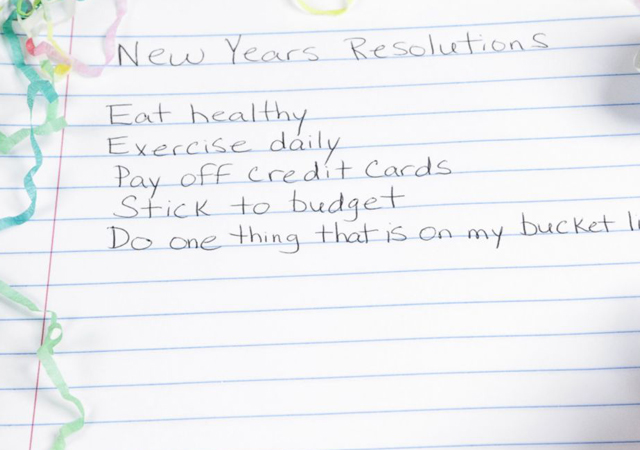 New Years Resolutions
Eat healthy
Exercise daily
Pay off credit cards
Stick to budget
Do one thing that is on my bucket li